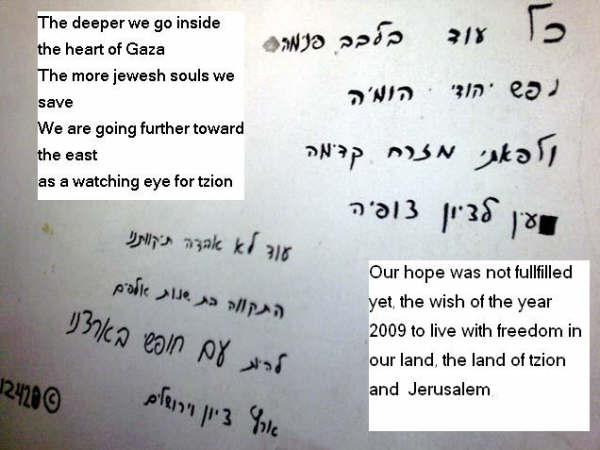 The deeper we go inside
the heart of Gaza
The more jewesh souls we
save
We are going further toward
the east
as a watching eye for tzion
כל עוד בלבב פנימה
נפש יהודי הומיה
ולפאתי מזרח קדימה
עין לציון צופיה
עוד לא אבדה תיקוותנו
התקווה בת שנות אלפים
להיות עם חופשי בארצנו
ארץ ציון וירושלים
Our hope was not fullfilled
yet, the wish of the year
2009 to live with freedom in
our land, the land of tzion
and Jerusalem